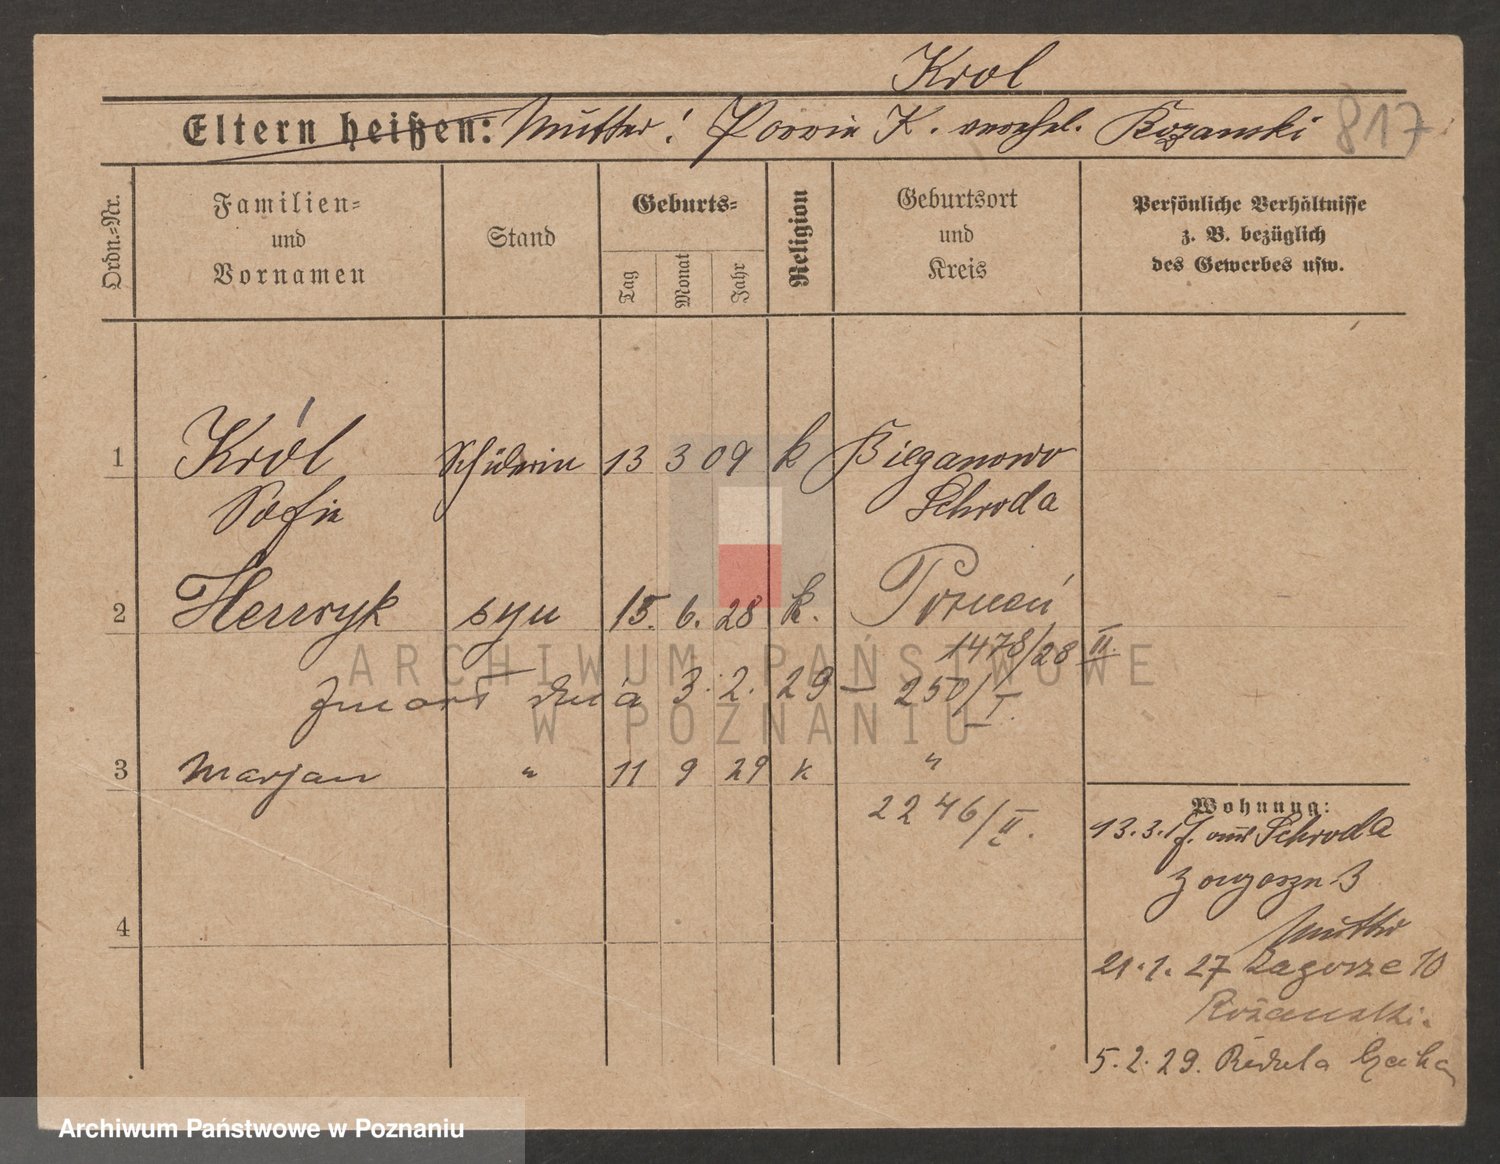 Krol
Eltern heißen: Mutter: K. verehel. Rozanski 817
Ordn.-Nr.
Familien-
und
Vornamen
Stand
Geburts-
Tag
Monat
Jahr
Religion
Geburtsort
und
Kreis
Persönliche Verhältnisse
z. B. bezüglich
des Gewerbes usw.
1 Król Schülerin 13 3 09 k Bieganowo
Sofie Schroda
2 Henryk syn 15. 6. 28 k. Poznań
1478/28 II.
zmarł dnia 3. 2. 29 – 250/I.
3 Marjan " 11 9 29 k "
2246/II.
4
Wohnung:
13.3.17. aus Schroda
Zagorze 3
Mutter
21.1.27 Zagorze 10
Rożanski.
5.2.29.
ARCHIWUM PAŃSTWOWE
W POZNANIU
Archiwum Państwowe w Poznaniu